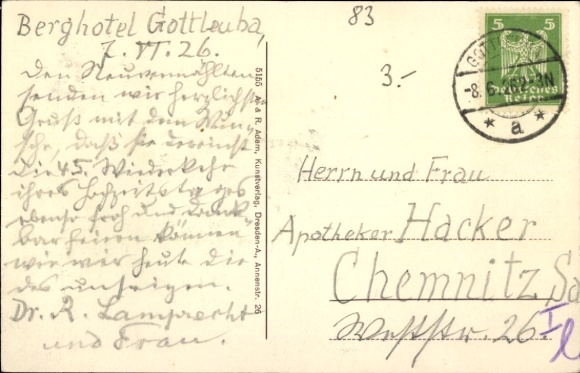 Berghotel Gottleuba,
7. VI. 26.
Den Neuvermählten
senden wir herzlichst
Gruß mit dem Wun
sche, daß sie dereinst
die 45. Wiederkehr
ihres Hochzeitstages
ebenso froh und dank
bar feiern können
wie wir heute die
des unsrigen.
Dr. R. Lamprecht
und Frau.
5155 A. & R. Adam, Kunstverlag, Dresden-A., Annenstr. 26
83
3.-
5 5
Deutsches
Reich
-8.6.
-3N
* a *
Herrn und Frau
Apotheker Hacker
Chemnitz, Sa
Weststr. 26 I